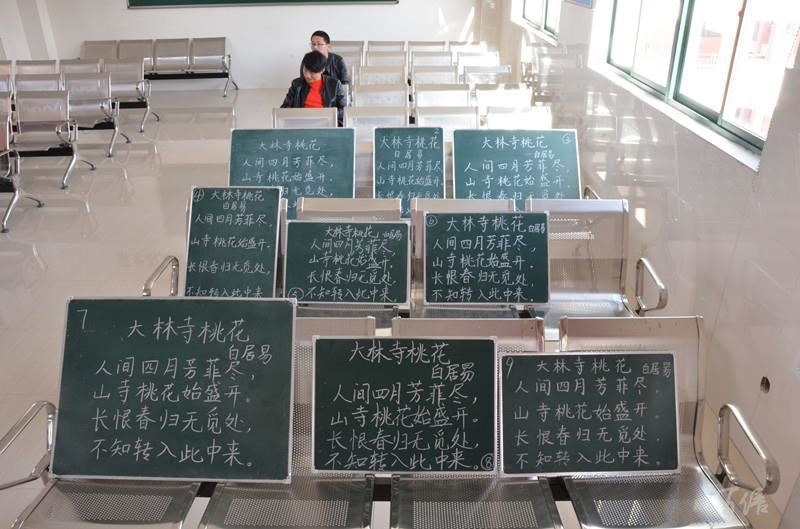 大林寺桃花
人间四月芳菲尽,
山寺桃花始盛开.
2
大林寺桃花
白居易
人间四月芳菲尽,
山寺桃花始盛开.
大林寺桃花 ③
白居易
人间四月芳菲尽,
山寺桃花始盛开.
④ 大林寺桃花
白居易
人间四月芳菲尽,
山寺桃花始盛开.
长恨春归无觅处,
不知转入此中来.
大林寺桃花 白居易
人间四月芳菲尽,
山寺桃花始盛开.
长恨春归无觅处,
⑤ 不知转入此中来.
⑥ 大林寺桃花 白居易
人间四月芳菲尽,
山寺桃花始盛开.
长恨春归无觅处,
不知转入此中来.
7 大林寺桃花
白居易
人间四月芳菲尽,
山寺桃花始盛开.
长恨春归无觅处,
不知转入此中来.
大林寺桃花
白居易
人间四月芳菲尽,
山寺桃花始盛开.
长恨春归无觅处,
不知转入此中来. ⑧
9 大林寺桃花 白居易
人间四月芳菲尽,
山寺桃花始盛开.
长恨春归无觅处,
不知转入此中来.